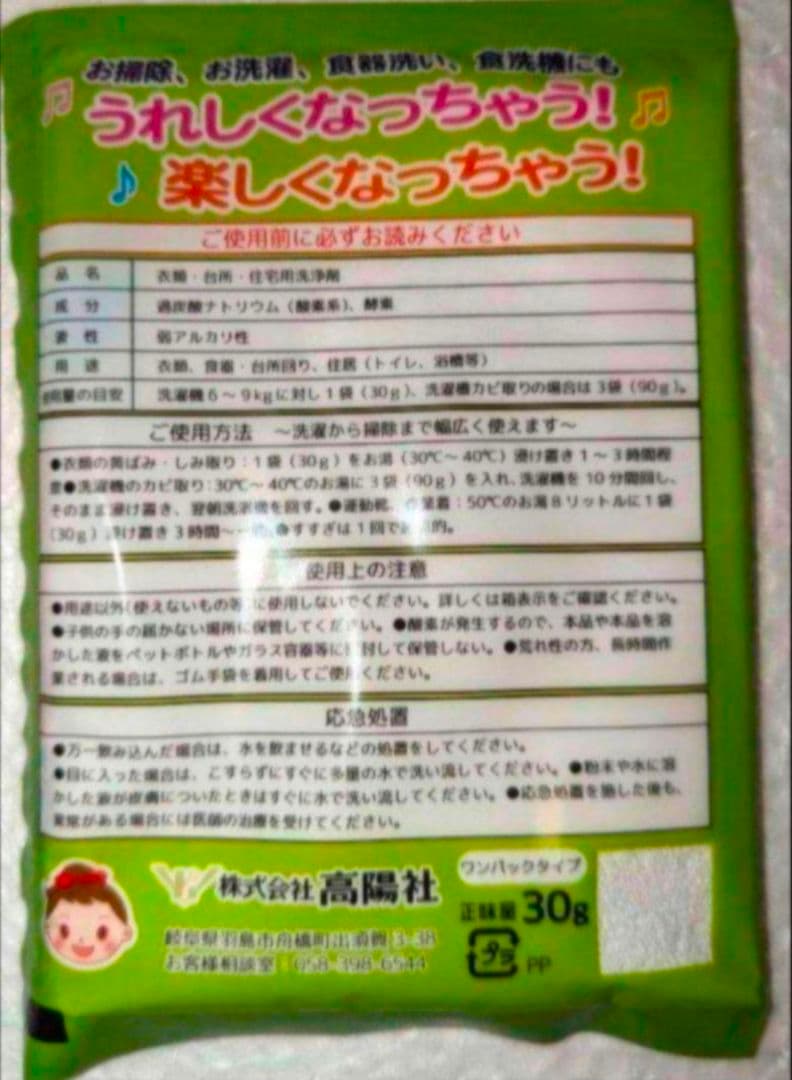 お掃除、お洗濯、食器洗い、食洗機にも
うれしくなっちゃう!
楽しくなっちゃう!
ご使用前に必ずお読みください
品 名 衣類・台所・住宅用洗浄剤
成 分 過炭酸ナトリウム(酸素系)、酵素
液 性 弱アルカリ性
用 途 衣類、食器・台所回り、住居(トイレ、浴槽等)
使用量の目安 洗濯機6〜9kgに対し1袋(30g)、洗濯槽カビ取りの場合は3袋(90g)。
ご使用方法 〜洗濯から掃除まで幅広く使えます〜
●衣類の黄ばみ・しみ取り:1袋(30g)をお湯(30℃〜40℃)浸け置き1〜3時間程
度●洗濯機のカビ取り:30℃〜40℃のお湯に3袋(90g)を入れ、洗濯機を10分間回し、
そのまま浸け置き、翌朝洗濯機を回す。●運動靴、作業着:50℃のお湯8リットルに1袋
(30g)浸け置き3時間〜 すすぎは1回で 的。
使用上の注意
●用途以外(使えないもの等)に使用しないでください。詳しくは箱表示をご確認ください。
●子供の手の届かない場所に保管してください。●酸素が発生するので、本品や本品を溶
かした液をペットボトルやガラス容器等に密封して保管しない。●荒れ性の方、長時間作
業される場合は、ゴム手袋を着用してご使用ください。
応急処置
●万一飲み込んだ場合は、水を飲ませるなどの処置をしてください。
●目に入った場合は、こすらずにすぐに多量の水で洗い流してください。●粉末や水に溶
かした液が皮膚についたときはすぐに水で洗い流してください。●応急処置を施した後も、
異常がある場合には医師の治療を受けてください。
株式会社 高陽社
岐阜県羽島市舟橋町出須賀 3-38
お客様相談室:058-398-6544
ワンパックタイプ
正味量 30g
プラ PP